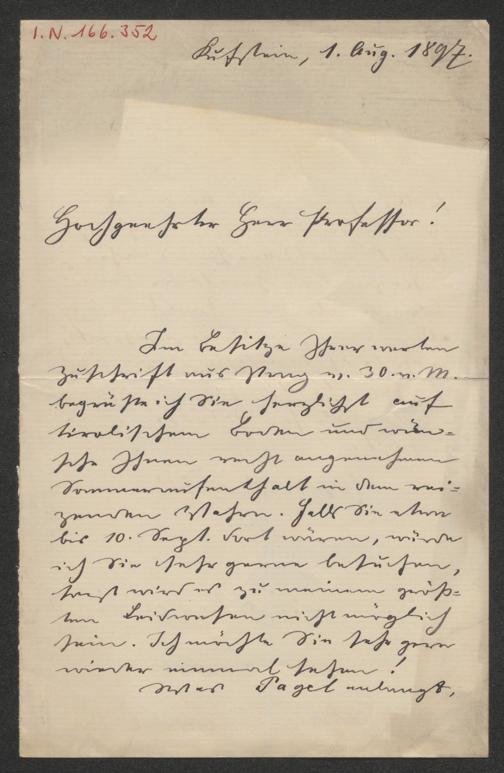 I.N. 166.352
Kufstein, 1. Aug. 1897.
Hochgeehrter Herr Professor!
Im Besitze Ihrer werten
Zuschrift aus Prag v. 30. v. M.
begrüße ich Sie herzlichst auf
tirolischem Boden und wün-
sche Ihnen recht angenehmen
Sommeraufenthalt in dem rei-
zenden Vahrn. Falls Sie etwa
bis 10. Sept. dort wären, würde
ich Sie sehr gerne besuchen,
sonst wird es zu meinem größ-
ten Leidwesen nicht möglich
sein. Ich möchte Sie sehr gern
wieder einmal sehen!
Was Pagel anlangt,